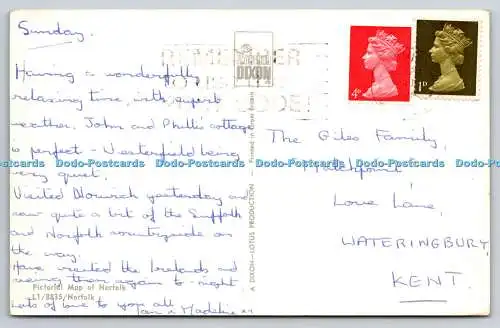 Sunday.
Having a wonderfully
relaxing time, with superb
weather. John and Phyllis cottage
is perfect - Westerfield being
very quiet.
Visited Norwich yesterday and
saw quite a bit of the Suffolk
and Norfolk countryside on
the way.
Have visited the and
seeing them again to-night
Lots of love to you all
Ian & Madeline xx
Pictorial Map of Norfolk
L1/8835/Norfolk
REMEMBER
DIXON
A DIXON—LOTUS PRODUCTION
Printed in Great Britain
4D
1D
The Giles Family,
"Matchpoint"
Love Lane,
WATERINGBURY,
KENT.
Dodo-Postcards Dodo-Postcards Dodo-Postcards Dodo-Postcards Dodo-Postcards Dodo-Postcards